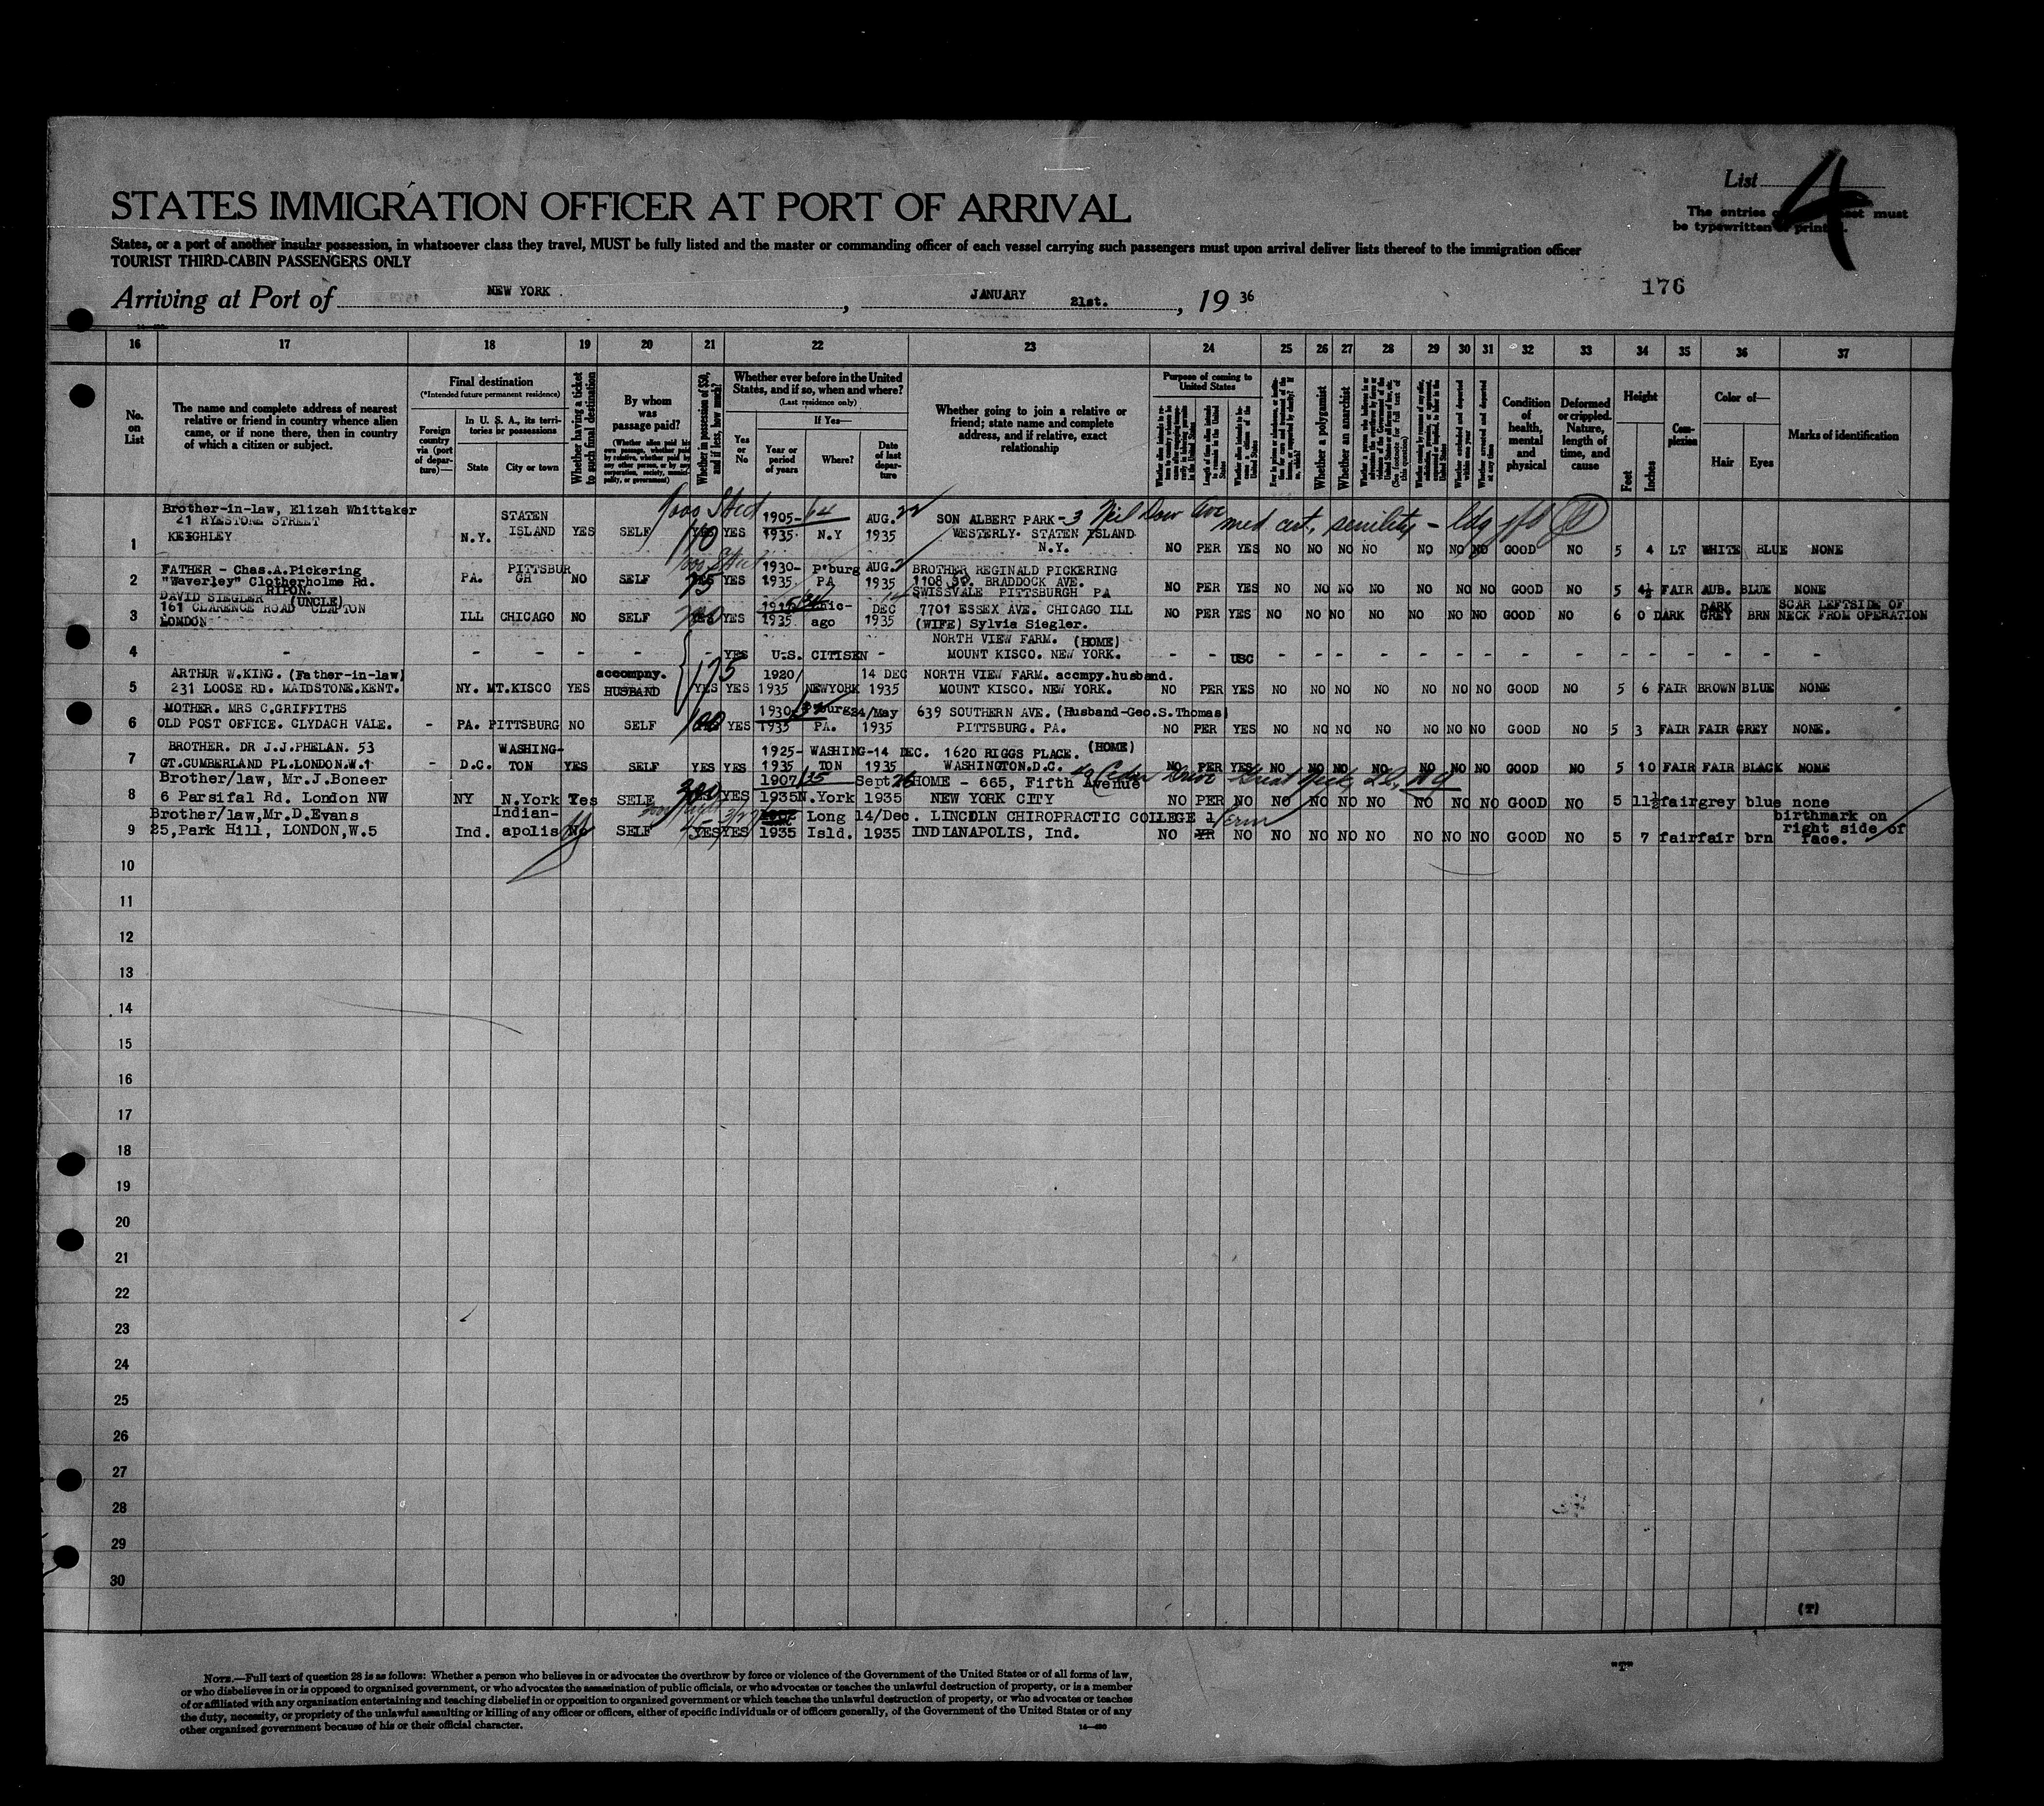 List 4
STATES IMMIGRATION OFFICER AT PORT OF ARRIVAL
The entries must
be typewritten or printed.
States, or a port of another insular possession, in whatsoever class they travel, MUST be fully listed and the master or commanding officer of each vessel carrying such passengers must upon arrival deliver lists thereof to the immigration officer
TOURIST THIRD-CABIN PASSENGERS ONLY
176
Arriving at Port of NEW YORK , JANUARY 21st. , 19 36
16 17 18 19 20 21 22 23 24 25 26 27 28 29 30 31 32 33 34 35 36 37
No. on List
The name and complete address of nearest relative or friend in country whence alien came, or if none there, then in country of which a citizen or subject.
Final destination
(*Intended future permanent residence)
Foreign country via (port of departure)—
In U. S. A., its territories or possessions
State
City or town
Whether having a ticket to such final destination
By whom was passage paid?
(Whether alien paid his own passage, whether paid by relative, whether paid by any other person, or by any corporation, society, municipality, or government)
Whether in possession of $50, and if less, how much?
Whether ever before in the United States, and if so, when and where?
(Last residence only)
Yes or No
If Yes—
Year or period of years
Where?
Date of last departure
Whether going to join a relative or friend; state name and complete address, and if relative, exact relationship
Purpose of coming to United States
Length of time alien intends to remain in the United States
Whether alien intends to become a citizen of the United States
Whether a polygamist
Whether an anarchist
(See footnote for full text of this question)
Whether arrested and deported at any time
Condition of health, mental and physical
Deformed or crippled. Nature, length of time, and cause
Height
Feet
Inches
Complexion
Color of—
Hair
Eyes
Marks of identification
1 Brother-in-law, Elizah Whittaker 21 RYESTONE STREET KEIGHLEY N.Y. STATEN ISLAND YES SELF YES YES 1905-1935 N.Y AUG. 1935 SON ALBERT PARK-3 WESTERLY. STATEN ISLAND N.Y. NO PER YES NO NO NO NO NO NO NO GOOD NO 5 4 LT WHITE BLUE NONE
med cert, senility
2 FATHER - Chas.A.Pickering "Waverley" Clotherholme Rd. RIPON. PA. PITTSBURGH NO SELF YES YES 1930-1935 P'burg PA AUG. 1935 BROTHER REGINALD PICKERING 1108 SO. BRADDOCK AVE. SWISSVALE PITTSBURGH PA NO PER YES NO NO NO NO NO NO NO GOOD NO 5 4½ FAIR AUB. BLUE NONE
3 DAVID SIEGLER (UNCLE) 161 CLARENCE ROAD CLAPTON LONDON ILL CHICAGO NO SELF YES 1935 Chicago DEC 1935 7701 ESSEX AVE. CHICAGO ILL (WIFE) Sylvia Siegler. NO PER YES NO NO NO NO NO NO NO GOOD NO 6 0 DARK DARK GREY BRN SCAR LEFTSIDE OF NECK FROM OPERATION
4 - - - - - - - YES U.S. CITISEN - NORTH VIEW FARM. (HOME) MOUNT KISCO. NEW YORK. - - USC - - - - - - - - - - - - - - -
5 ARTHUR W.KING. (Father-in-law) 231 LOOSE RD. MAIDSTONE.KENT. NY. MT.KISCO YES accompny. HUSBAND 175 YES YES 1920/1935 NEWYORK 14 DEC 1935 NORTH VIEW FARM. accmpy.husband. MOUNT KISCO. NEW YORK. NO PER YES NO NO NO NO NO NO NO GOOD NO 5 6 FAIR BROWN BLUE NONE
6 MOTHER. MRS C.GRIFFITHS OLD POST OFFICE. CLYDACH VALE. - PA. PITTSBURG NO SELF 100 YES 1930-1935 P'burg PA. 24/May 1935 639 SOUTHERN AVE. (Husband-Geo.S.Thomas) PITTSBURG. PA. NO PER YES NO NO NO NO NO NO NO GOOD NO 5 3 FAIR FAIR GREY NONE.
7 BROTHER. DR J.J.PHELAN. 53 GT.CUMBERLAND PL.LONDON.W.1 - D.C. WASHINGTON YES SELF YES YES 1925-1935 WASHINGTON 14 DEC. 1935 1620 RIGGS PLACE. (HOME) WASHINGTON.D.C. NO PER YES NO NO NO NO NO NO NO GOOD NO 5 10 FAIR FAIR BLACK NONE
8 Brother/law, Mr.J.Boneer 6 Parsifal Rd. London NW NY N.York Yes SELF 300 YES 1907/35 1935 N.York Sept 26 1935 HOME - 665, Fifth Avenue NEW YORK CITY NO PER NO NO NO NO NO NO NO NO GOOD NO 5 11½ fair grey blue none
Cedar Drive Great Neck, L.I., N.Y
9 Brother/law,Mr.D.Evans 25,Park Hill, LONDON,W.5 Ind. Indianapolis No SELF YES YES 1935 Long Isld. 14/Dec. 1935 LINCOLN CHIROPRACTIC COLLEGE INDIANAPOLIS, Ind. NO YR 1 Term NO NO NO NO NO NO NO NO GOOD NO 5 7 fair fair brn birthmark on right side of face.
10
11
12
13
14
15
16
17
18
19
20
21
22
23
24
25
26
27
28
29
30
(T)
"T"
NOTE.—Full text of question 28 is as follows: Whether a person who believes in or advocates the overthrow by force or violence of the Government of the United States or of all forms of law,
or who disbelieves in or is opposed to organized government, or who advocates the assassination of public officials, or who advocates or teaches the unlawful destruction of property, or is a member
of or affiliated with any organization entertaining and teaching disbelief in or opposition to organized government or which teaches the unlawful destruction of property, or who advocates or teaches
the duty, necessity, or propriety of the unlawful assaulting or killing of any officer or officers, either of specific individuals or of officers generally, of the Government of the United States or of any
other organized government because of his or their official character.
14—490